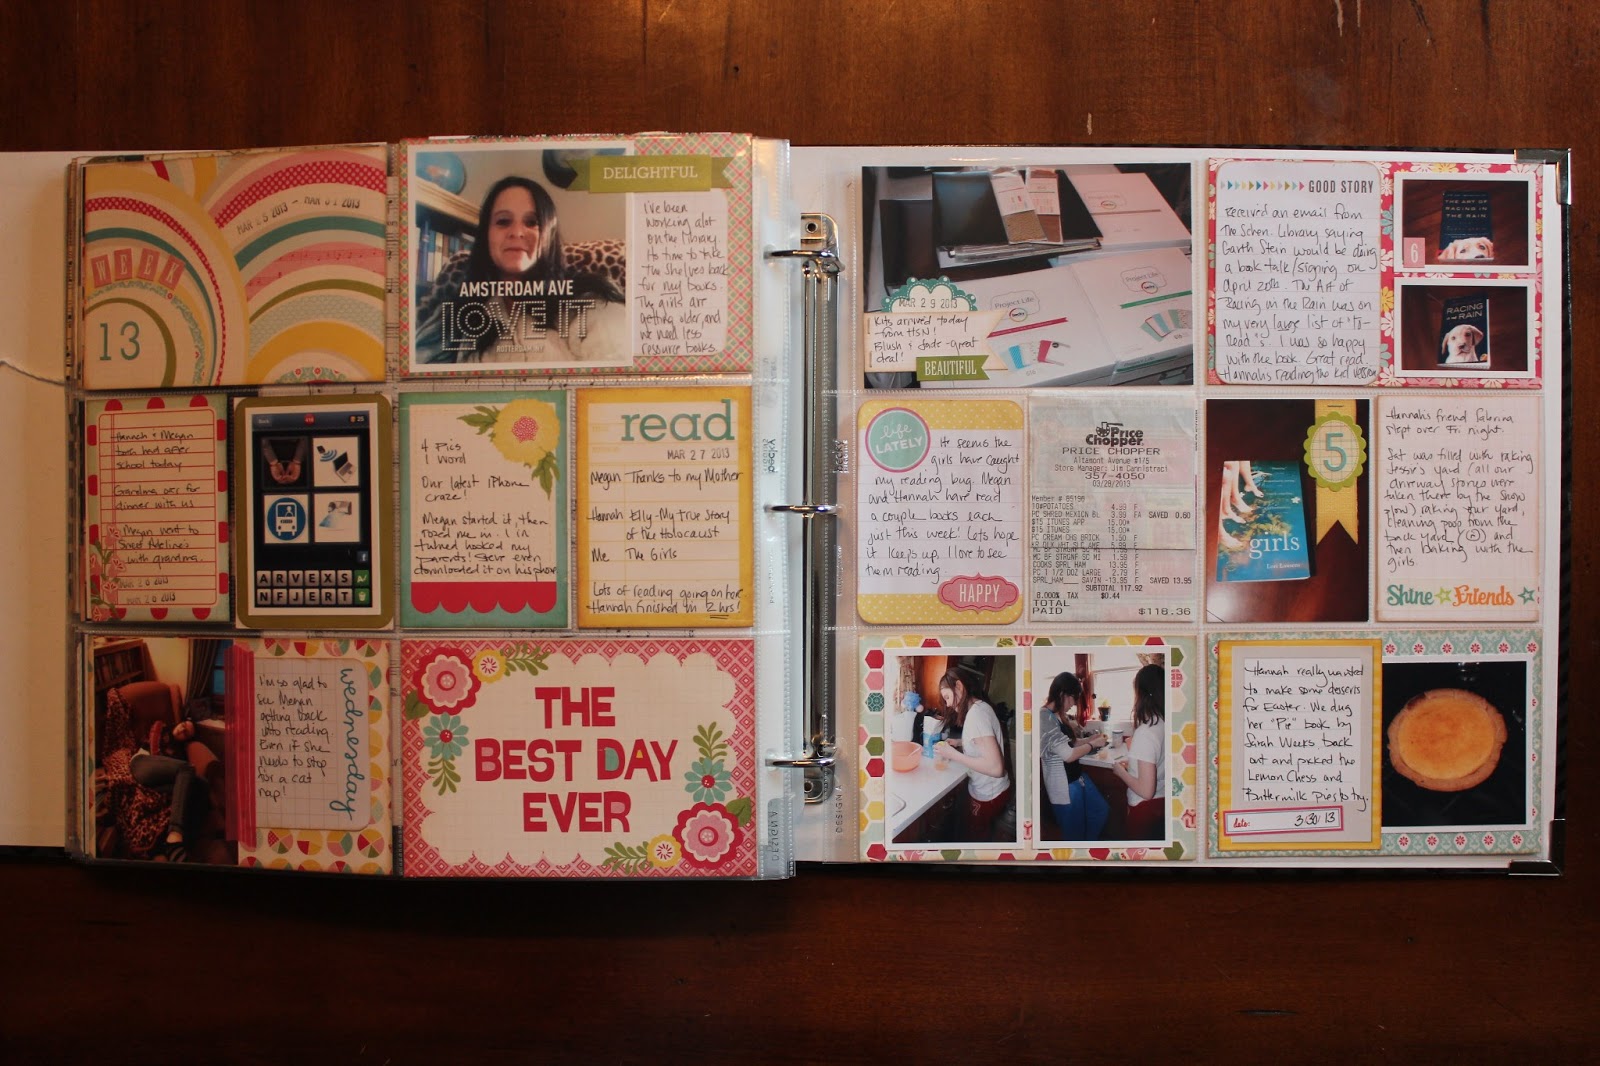 MAR 25 2013 – MAR 31 2013
WEEK
13
DELIGHTFUL
AMSTERDAM AVE
LOVE IT
ROTTERDAM, NY
I've been
working alot
on the library.
It's time to take
the shelves back
for my books.
The girls are
getting older, and
we need less
resource books.
Hannah & Megan
both had after
school today
Grandma over for
dinner with us
Megan went to
with grandma.
25
A R V E X S
N F J E R T
4 Pics
1 Word
Our latest iPhone
craze!
Megan started it, then
roped me in. I in
turned hooked my
parents! Steve even
downloaded it on his phone
read
MAR 27 2013
Megan Thanks to my Mother
Hannah Elly-My True Story
of the Holocaust
Me The Girls
Lots of reading going on here
Hannah finished in 2 hrs!
I'm so glad to
see Megan
getting back
into reading.
Even if she
needs to stop
for a cat
nap!
wednesday
THE
BEST DAY
EVER
MAR 29 2013
Kits arrived today
from HSN!
Blush & Jade - great
deal!
BEAUTIFUL
Project Life
Project Life
GOOD STORY
Received an email from
The Schen. Library saying
Garth Stein would be doing
a book talk/signing on
April 20th. The Art of
Racing in the Rain was on
my very large list of "To-
Read"s. I was so happy
with the book. Great read.
Hannah's reading the kid version
THE ART OF
RACING IN
THE RAIN
6
RACING
IN THE
RAIN
life
LATELY
It seems the
girls have caught
my reading bug. Megan
and Hannah have read
a couple books each
just this week! Lets hope
it keeps up. I love to see
them reading.
HAPPY
Price
Chopper
PRICE CHOPPER
Altamont Avenue #175
Store Manager: Jim Cannistraci
357-4050
03/28/2013
Member # 85196
10#POTATOES 4.99 F
PC SHRED MEXICN BL 3.99 FA SAVED 0.60
$15 ITUNES APP 15.00*
$15 ITUNES 15.00*
PC CREAM CHG BRICK 1.50 F
MC BF STRGNF SC MI
COOKS SPRL HAM 13.95 F
PC 1 1/2 DOZ LARGE 2.79 F
SPRL_HAM____ SAVIN -13.95 F SAVED 13.95
SUBTOTAL 117.92
8.000% TAX $0.44
TOTAL
PAID $118.36
5
girls
Lori Lansens
Hannah's friend Sabrina
slept over Fri night.
Sat was filled with raking
Jessie's yard (all our
driveway stones were
taken there by the snow
plow) raking our yard,
cleaning poop from the
back yard and
then baking with the
girls
Shine Friends
Hannah really wanted
to make some desserts
for Easter. We dug
her "Pie" book by
Sarah Weeks back
out and picked the
Lemon Chess and
Buttermilk Pies to try.
date: 3/30/13